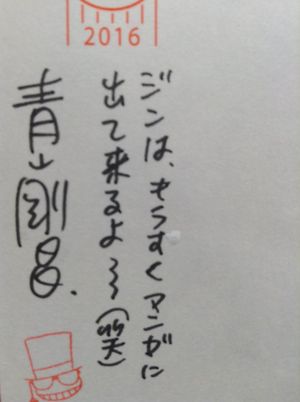 2016
ジンは、もうすぐマンガに
出て来るよ〜(笑)
青山剛昌.